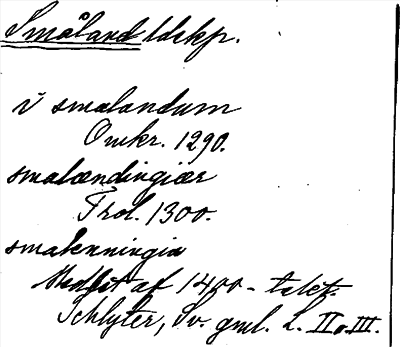 Småland ldskp.
i smalandum
Omkr. 1290.
smalændingiær
Trol. 1300.
smalenningia
af 1400-talet.
Schlyter, Sv. gml. L. II o. III.